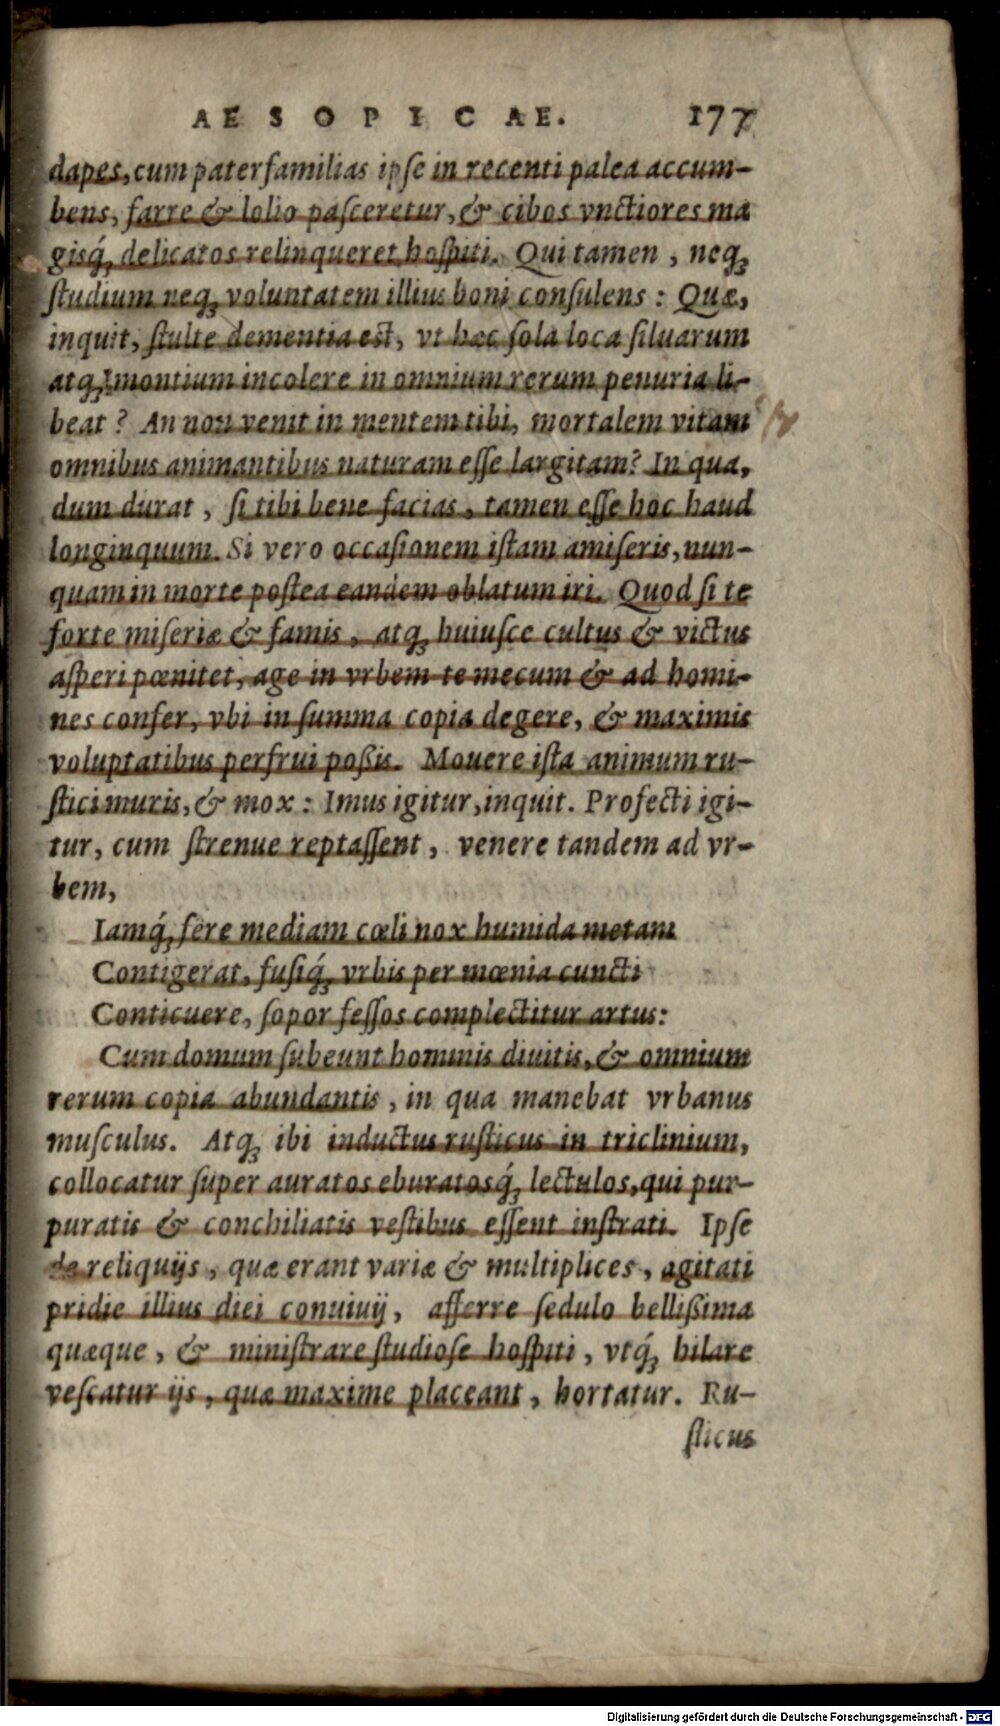 AESOPICAE. 177
dapes, cum paterfamilias ipſe in recenti palea accum-
bens, farre & lolio paſceretur, & cibos vnctiores ma
gisq́; delicatos relinqueret hoſpiti. Qui tamen, neq;
ſtudium neq; voluntatem illius boni conſulens: Quæ,
inquit, ſtulte dementia est, vt hæc ſola loca ſiluarum
atq; montium incolere in omnium rerum penuria li-
beat? An non venit in mentem tibi, mortalem vitam
omnibus animantibus naturam eſſe largitam? In qua,
dum durat, ſi tibi bene facias, tamen eſſe hoc haud
longinquum. Si vero occaſionem iſtam amiſeris, nun-
quam in morte poſtea eandem oblatum iri. Quod ſi te
forte miſeriæ & famis, atq; huiuſce cultus & victus
aſperi pœnitet, age in vrbem te mecum & ad homi-
nes confer, vbi in ſumma copia degere, & maximis
voluptatibus perfrui poßis. Mouere iſta animum ru-
ſtici muris, & mox: Imus igitur, inquit. Profecti igi-
tur, cum ſtrenue reptaſſent, venere tandem ad vr-
bem,
Iamq́; fere mediam cœli nox humida metam
Contigerat, fuſiq́; vrbis per mœnia cuncti
Conticuere, ſopor feſſos complectitur artus:
Cum domum ſubeunt hominis diuitis, & omnium
rerum copia abundantis, in qua manebat vrbanus
muſculus. Atq; ibi inductus ruſticus in triclinium,
collocatur ſuper auratos eburatosq́; lectulos, qui pur-
puratis & conchiliatis veſtibus eſſent inſtrati. Ipſe
de reliquijs, quæ erant variæ & multiplices, agitati
pridie illius diei conuiuij, afferre ſedulo bellißima
quæque, & miniſtrare ſtudioſe hoſpiti, vtq́; hilare
veſcatur ijs, quæ maxime placeant, hortatur. Ru-
ſticus
Digitalisierung gefördert durch die Deutsche Forschungsgemeinschaft - DFG